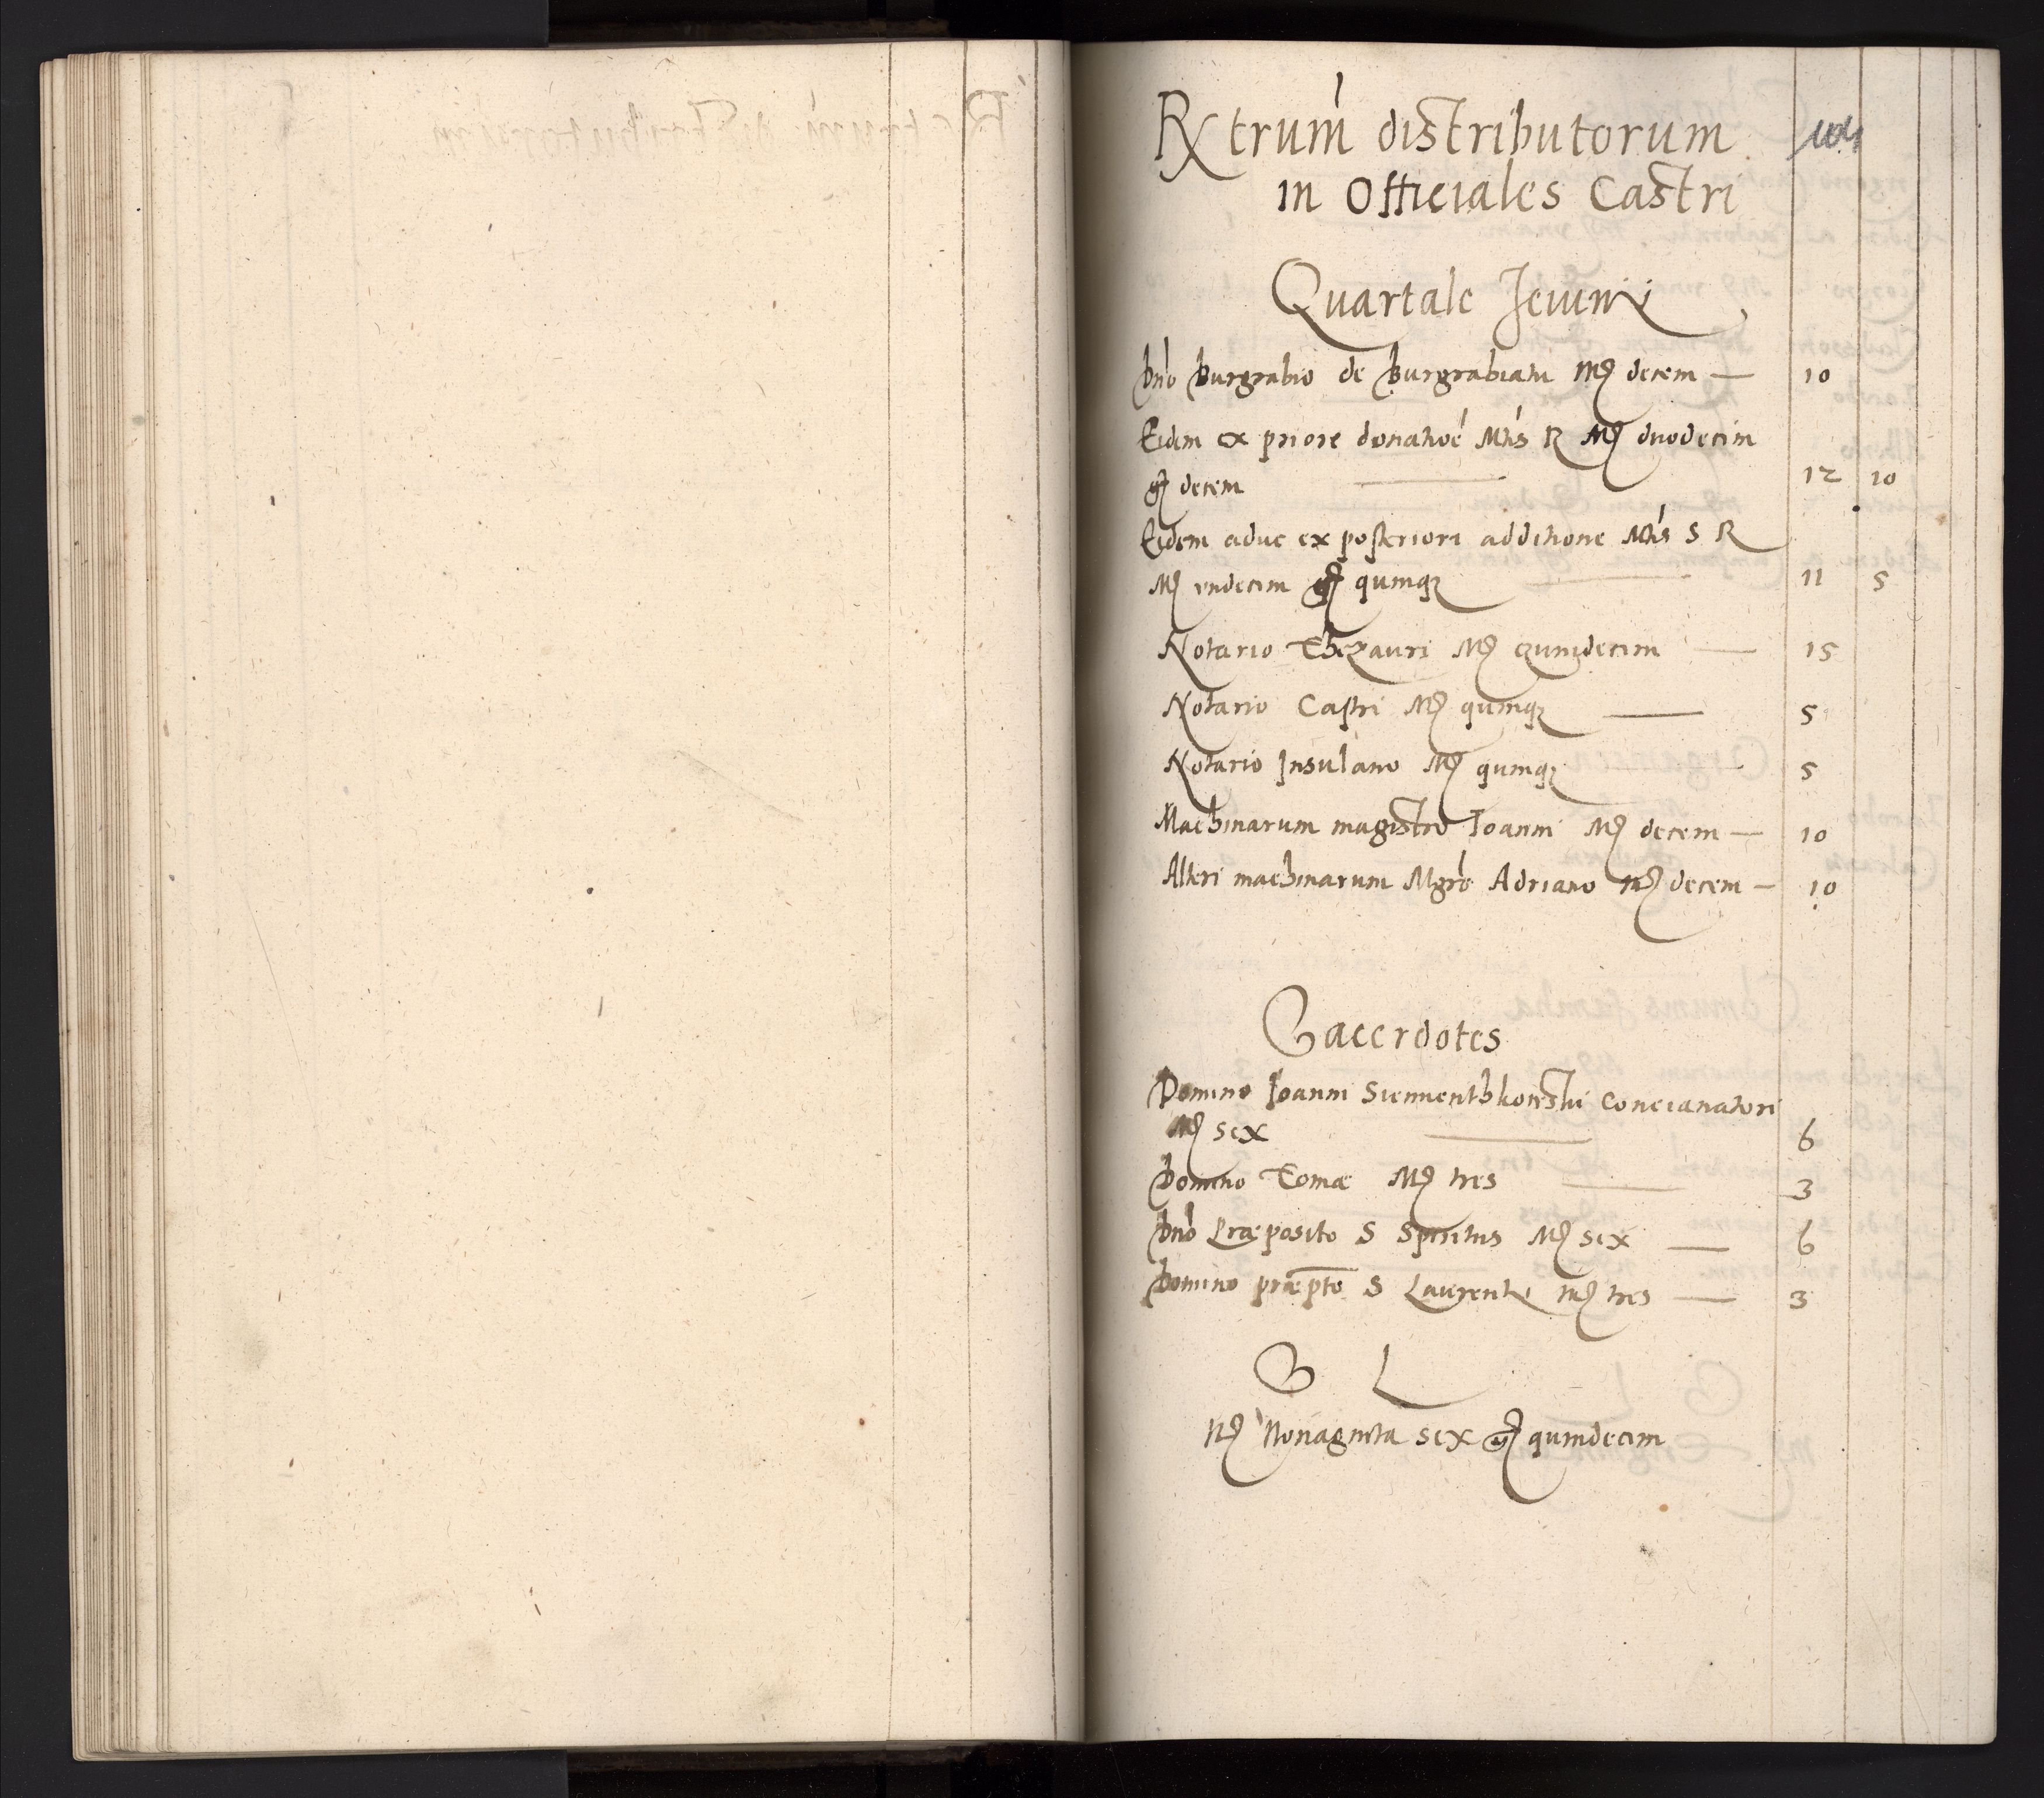 Rxtrum distributorum
in Officiales Castri
Quartale Jeiunij
Dno Burgrabio de Burgrabiatu Mr decem — 10
Eidem ex priore donatioe Mtis R Mr duodecim
gr decem — 12 10
Eidem aduc ex posteriori additione Mtis S R
Mr undecim gr quinqz — 11 5
Notario Thezauri Mr quindecim — 15
Notario Castri Mr quinqz — 5
Notario Insulano Mr quinqz — 5
Machinarum magistro Joanni Mr decem — 10
Alteri machinarum Mgro Adriano Mr decem — 10
Sacerdotes
Domino Joanni Concianatori
Mr sex — 6
Domino Tomæ Mr tres — 3
Dno Præposito S Spiritus Mr sex — 6
Domino præpto S Laurentij Mr tres — 3
S L
Mr Nonaginta sex gr quindecim